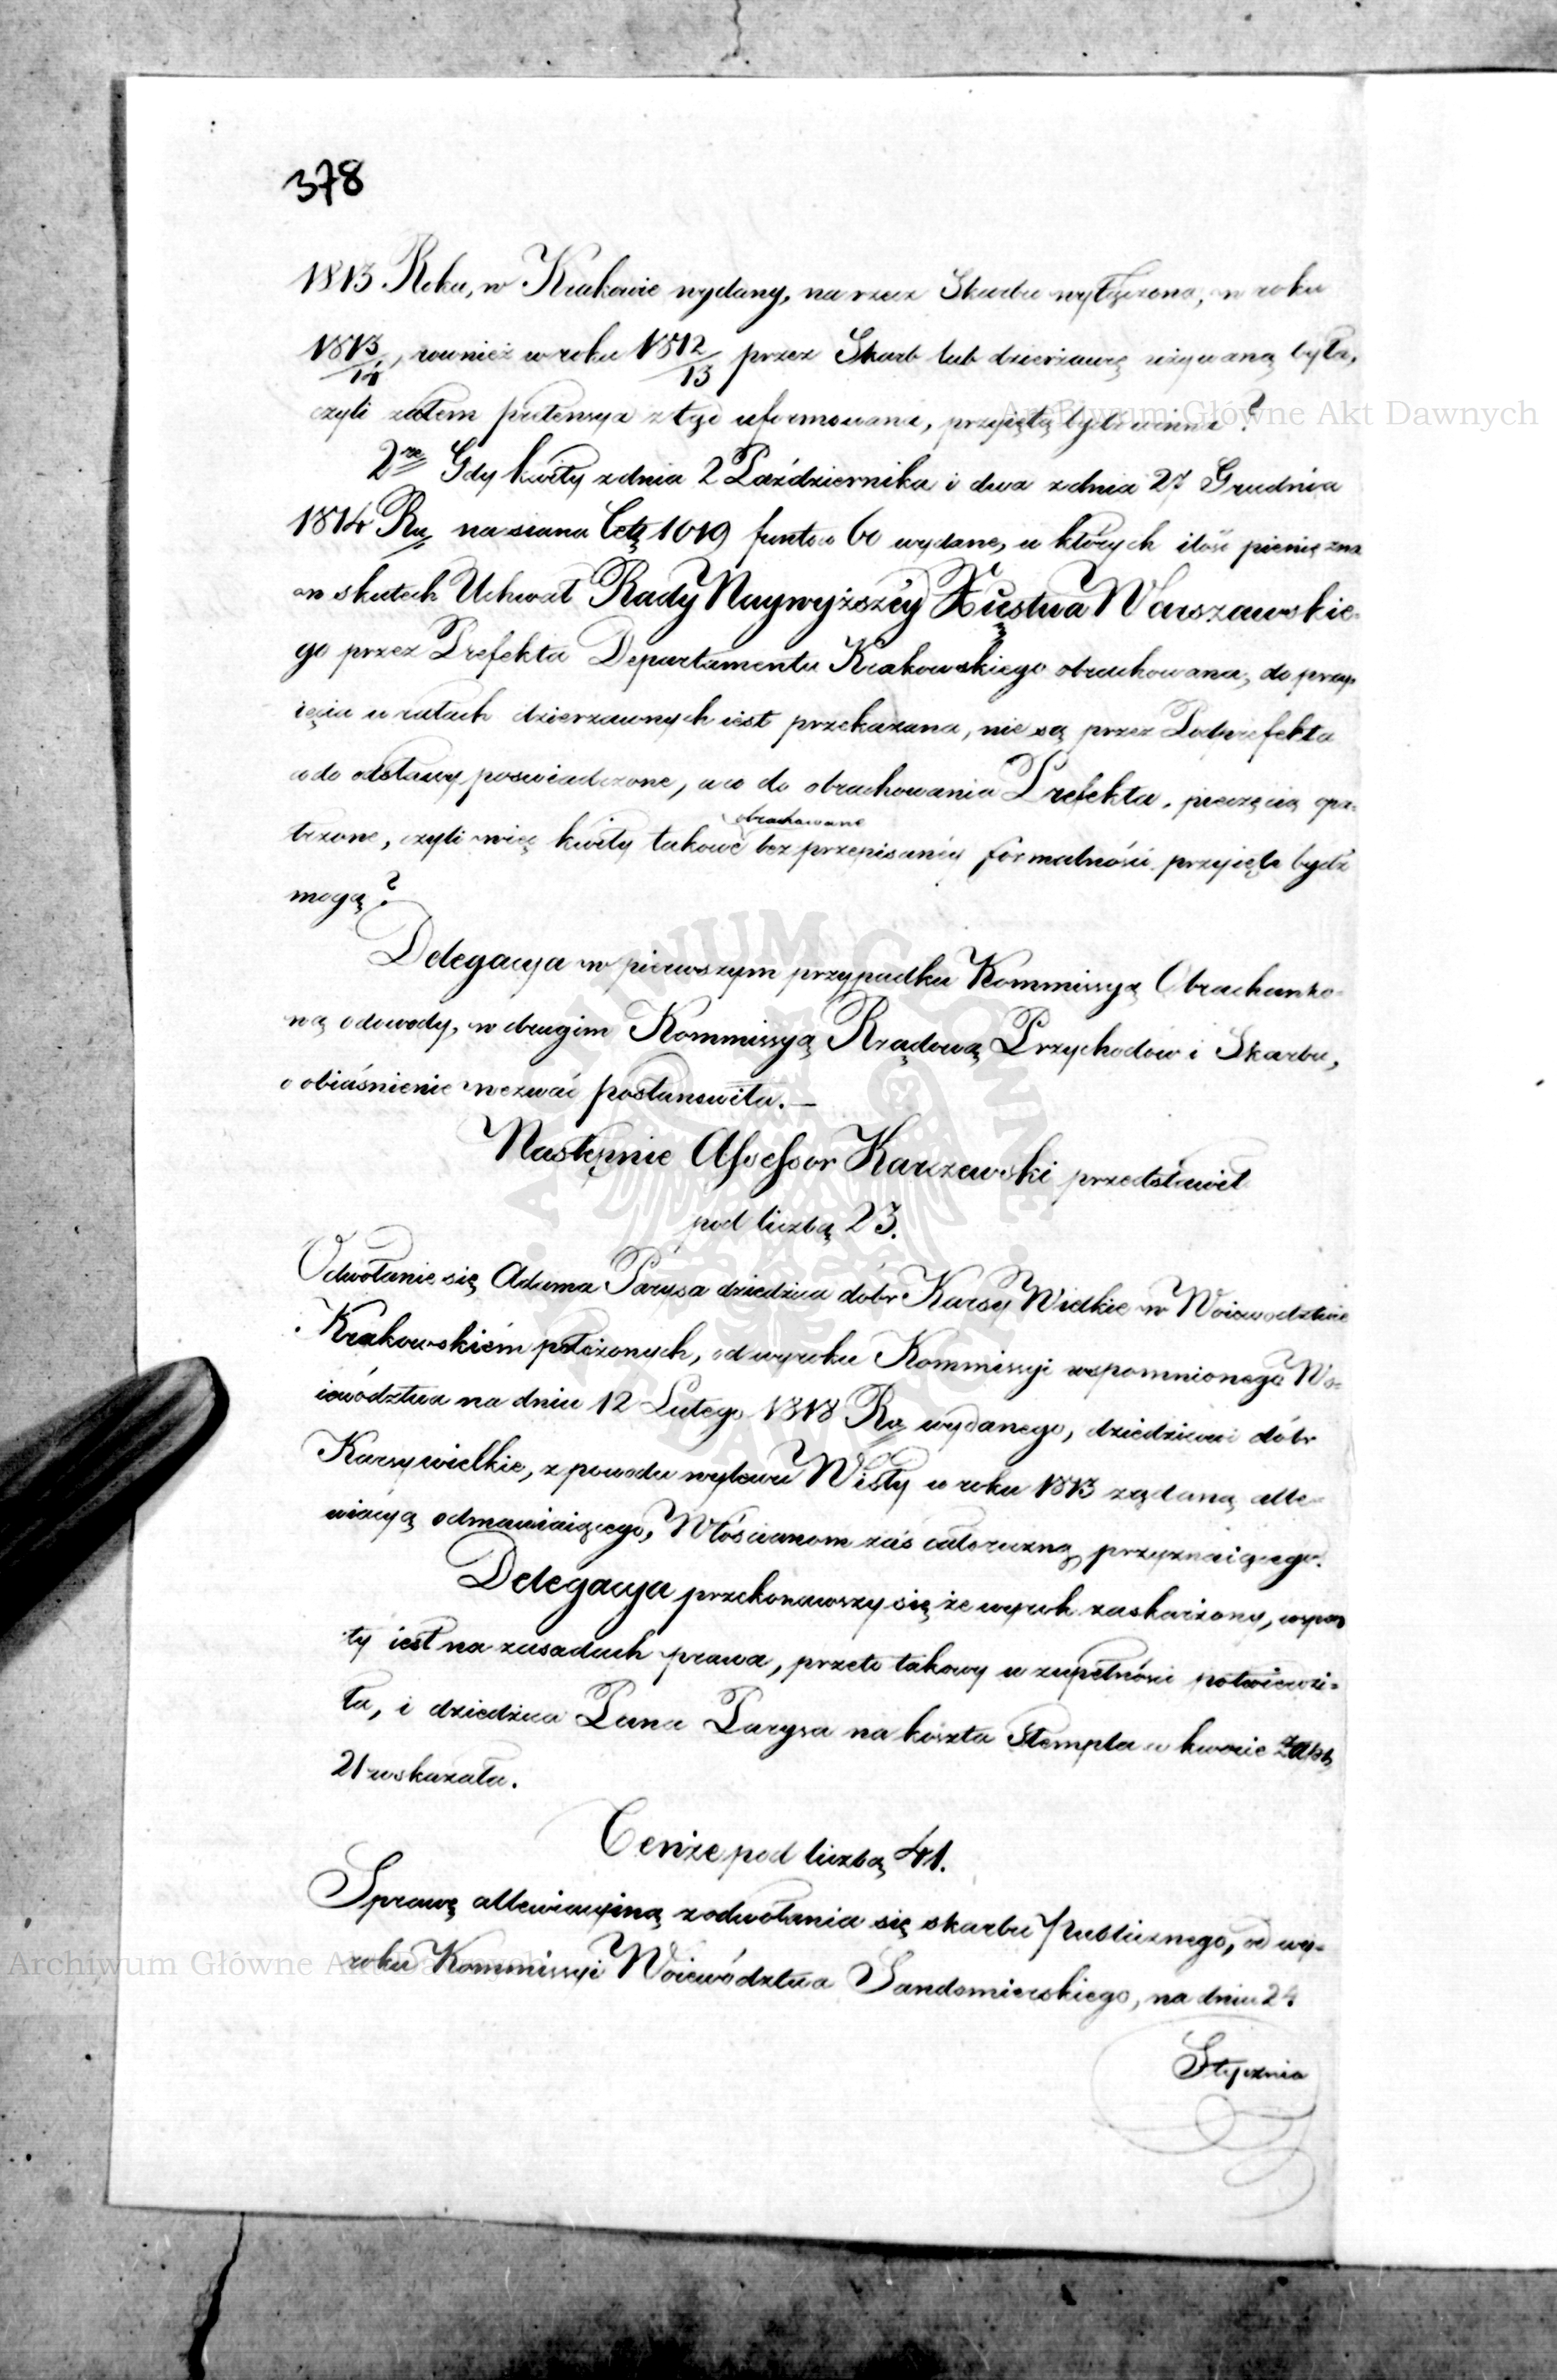 378
1813 Roku, w Krakowie wydany, na rzecz Skarbu wyłączona, w roku
1813/14, rownież w roku 1812/13 przez Skarb lub dzierżawcę używaną była,
czyli zatem pretensya z tąd uformowana, przyiętą bydź winna?
2re Gdy kwity z dnia 2 Października i dwa z dnia 27 Grudnia
1814 Ru na siana Cet 1019 funtow 60 wydane, w których ilość pieniężna
w skutek Uchwał Rady Naywyższéy Xięstwa Warszawskie-
go przez Prefekta Departamentu Krakowskiego obrachowana, do przy-
ięcia w ratach dzierzawnych iest przekazana, nie są przez Podprefekta
co do odstawy poswiadczone, a co do obrachowania Prefekta, pieczęcią opa-
trzone, czyli więc kwity takowe obrachowane bez przepisanéy formalności przyięte bydź
mogą?
Delegacya w pierwszym przypadku Kommissyą Obrachunko-
wą o dowody, w drugim Kommissyą Rządową Przychodów i Skarbu,
o obiaśnienie wezwać postanowiła. —
Następnie Assessor Karczewski przedstawił
pod liczbą 23.
Odwołanie się Adama Parysa dziedzica dóbr Karsy Wielkie w Woiewodztwie
Krakowskiém położonych, od wyroku Kommissyi wspomnionego Wo-
iewództwa na dniu 12 Lutego 1818 Ru wydanego, dziedzicowi dóbr
Karsy wielkie, z powodu wylewu Wisły w roku 1813 rządaną alle-
wiacyą odmawiaiącego, Włościanom zaś całoroczną przyznaiącego.
Delegacya przekonawszy się że wyrok zaskarżony, wspar
ty iest na zasadach prawa, przeto takowy w zupełności potwierdzi-
ła, i dziedzica Pana Parysa na koszta Stempla w kwocie
21 wskazała.
Tenże pod liczbą 41.
Sprawę allewiacyiną z odwołania się skarbu Publicznego, od wy-
roku Kommissyi Woiewództwa Sandomierskiego, na dniu 24
Stycznia
Archiwum Główne Akt Dawnych
Archiwum Główne Akt Dawnych